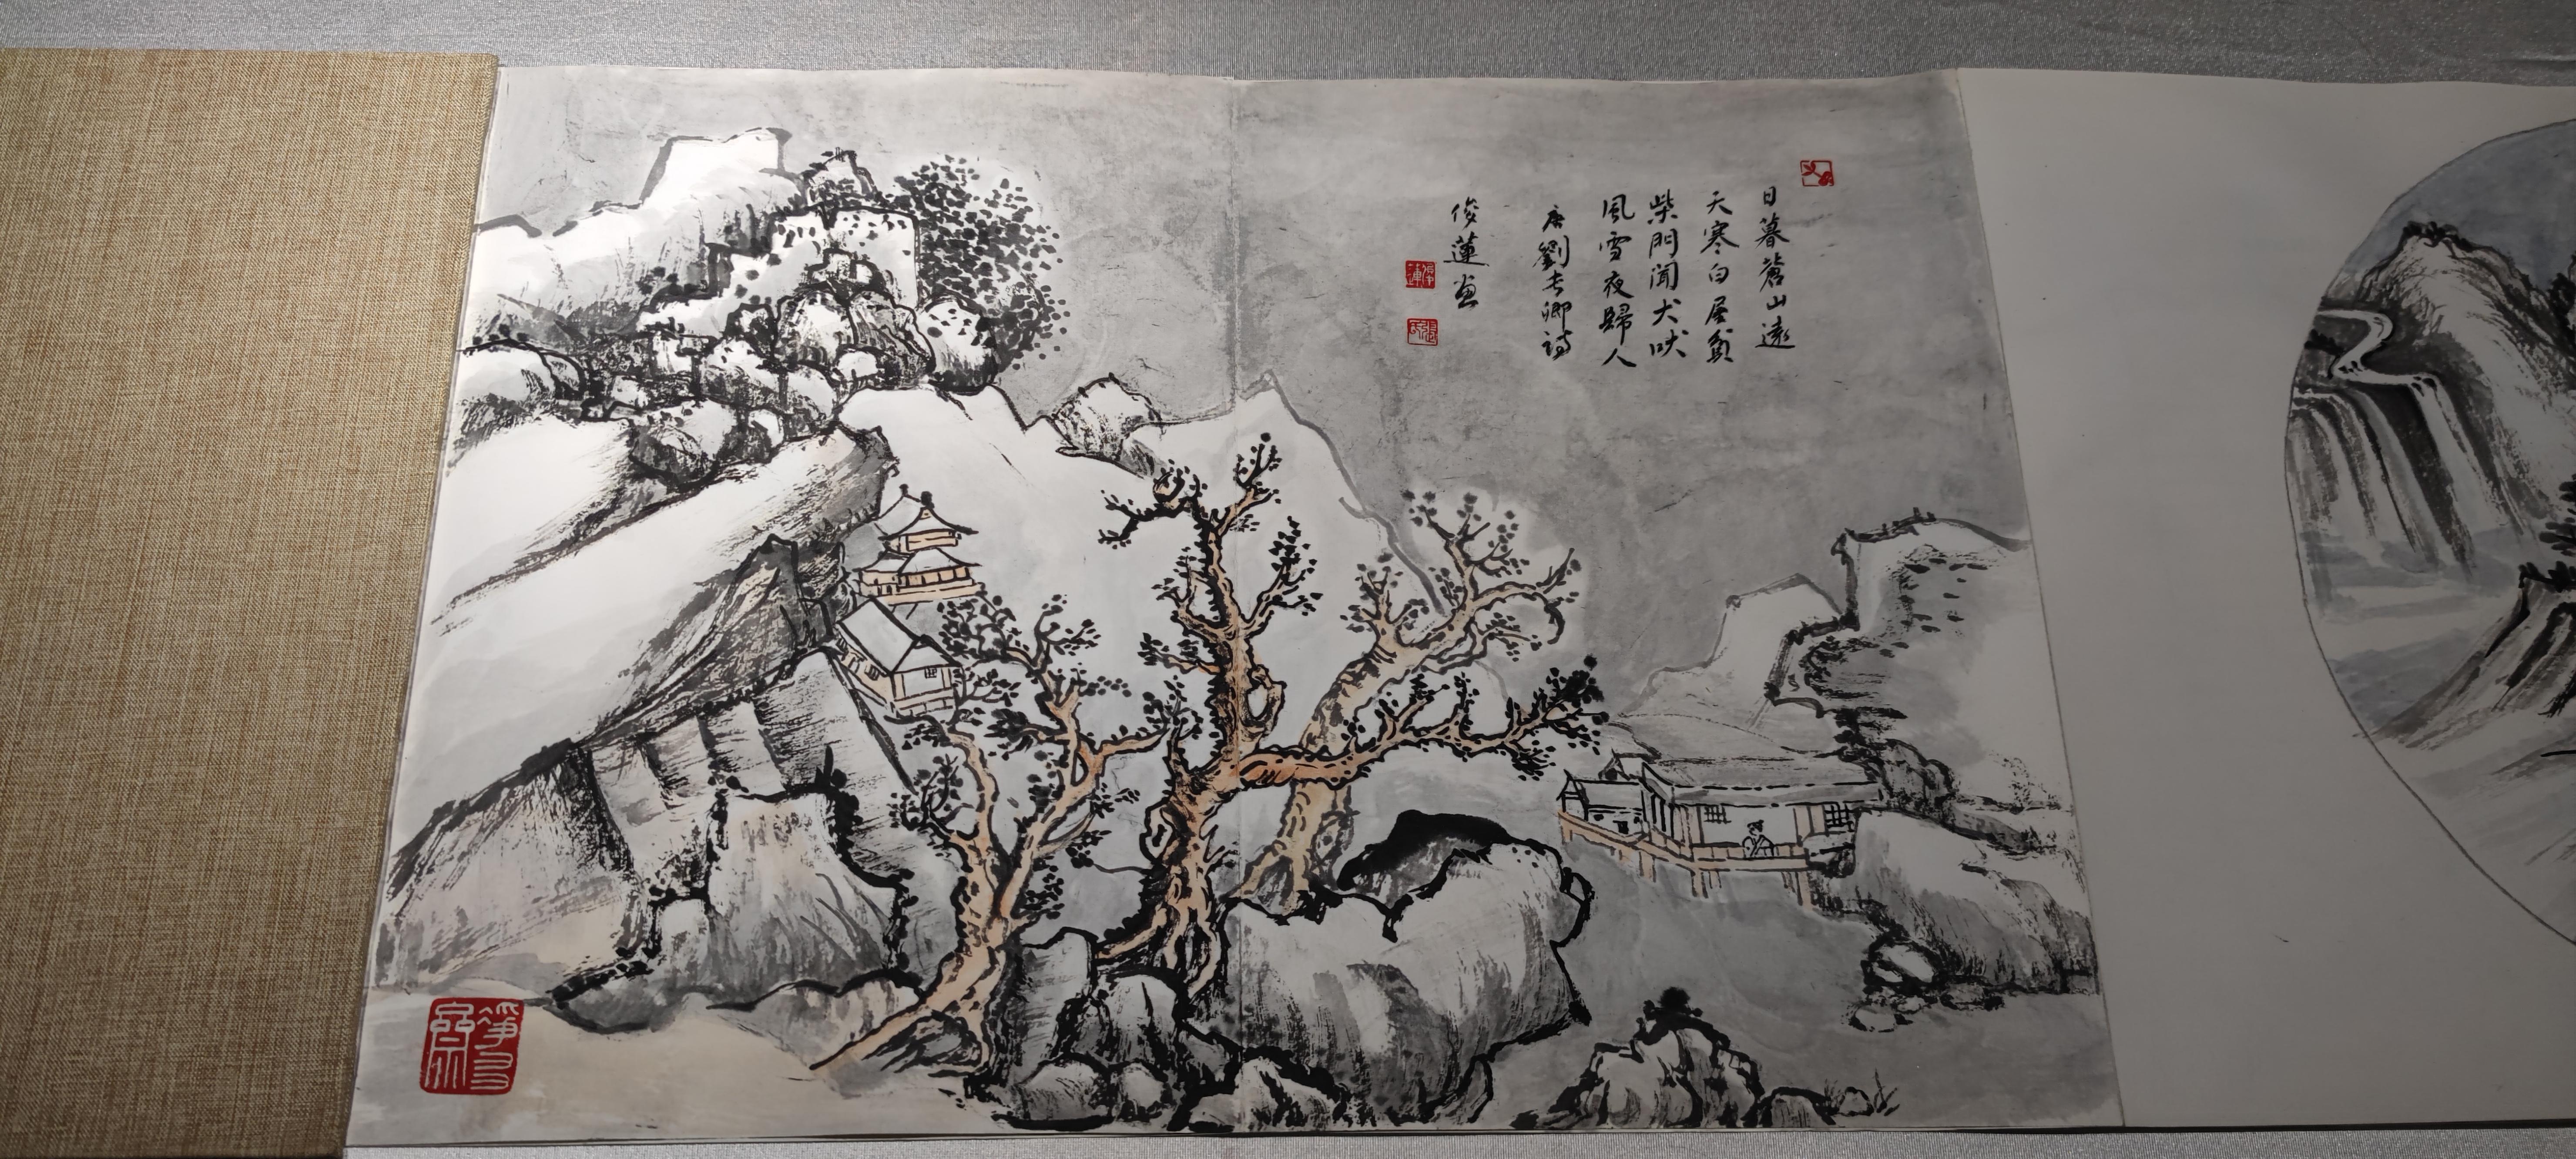 日暮蒼山遠
天寒白屋貧
柴門聞犬吠
風雪夜歸人
唐劉長卿詩
俊蓮畫
俊蓮